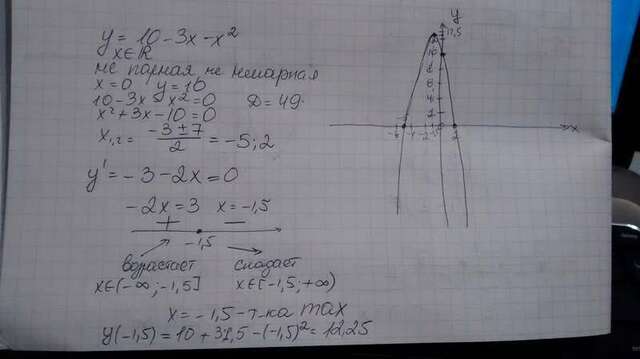 y = 10 - 3x - x²
x∈R
не парная не непарная
x = 0 y = 10
10 - 3x x² = 0 D = 49.
x² + 3x - 10 = 0
x₁,₂ = (-3 ± 7)/2 = -5; 2
y' = -3 - 2x = 0
-2x = 3 x = -1,5
+ -
-1,5
возрастает спадает
x∈(-∞; -1,5] x∈[-1,5; +∞)
x = -1,5 - т-ка max
y(-1,5) = 10 + 3·1,5 - (-1,5)² = 12,25
y
x
10
8
6
4
2